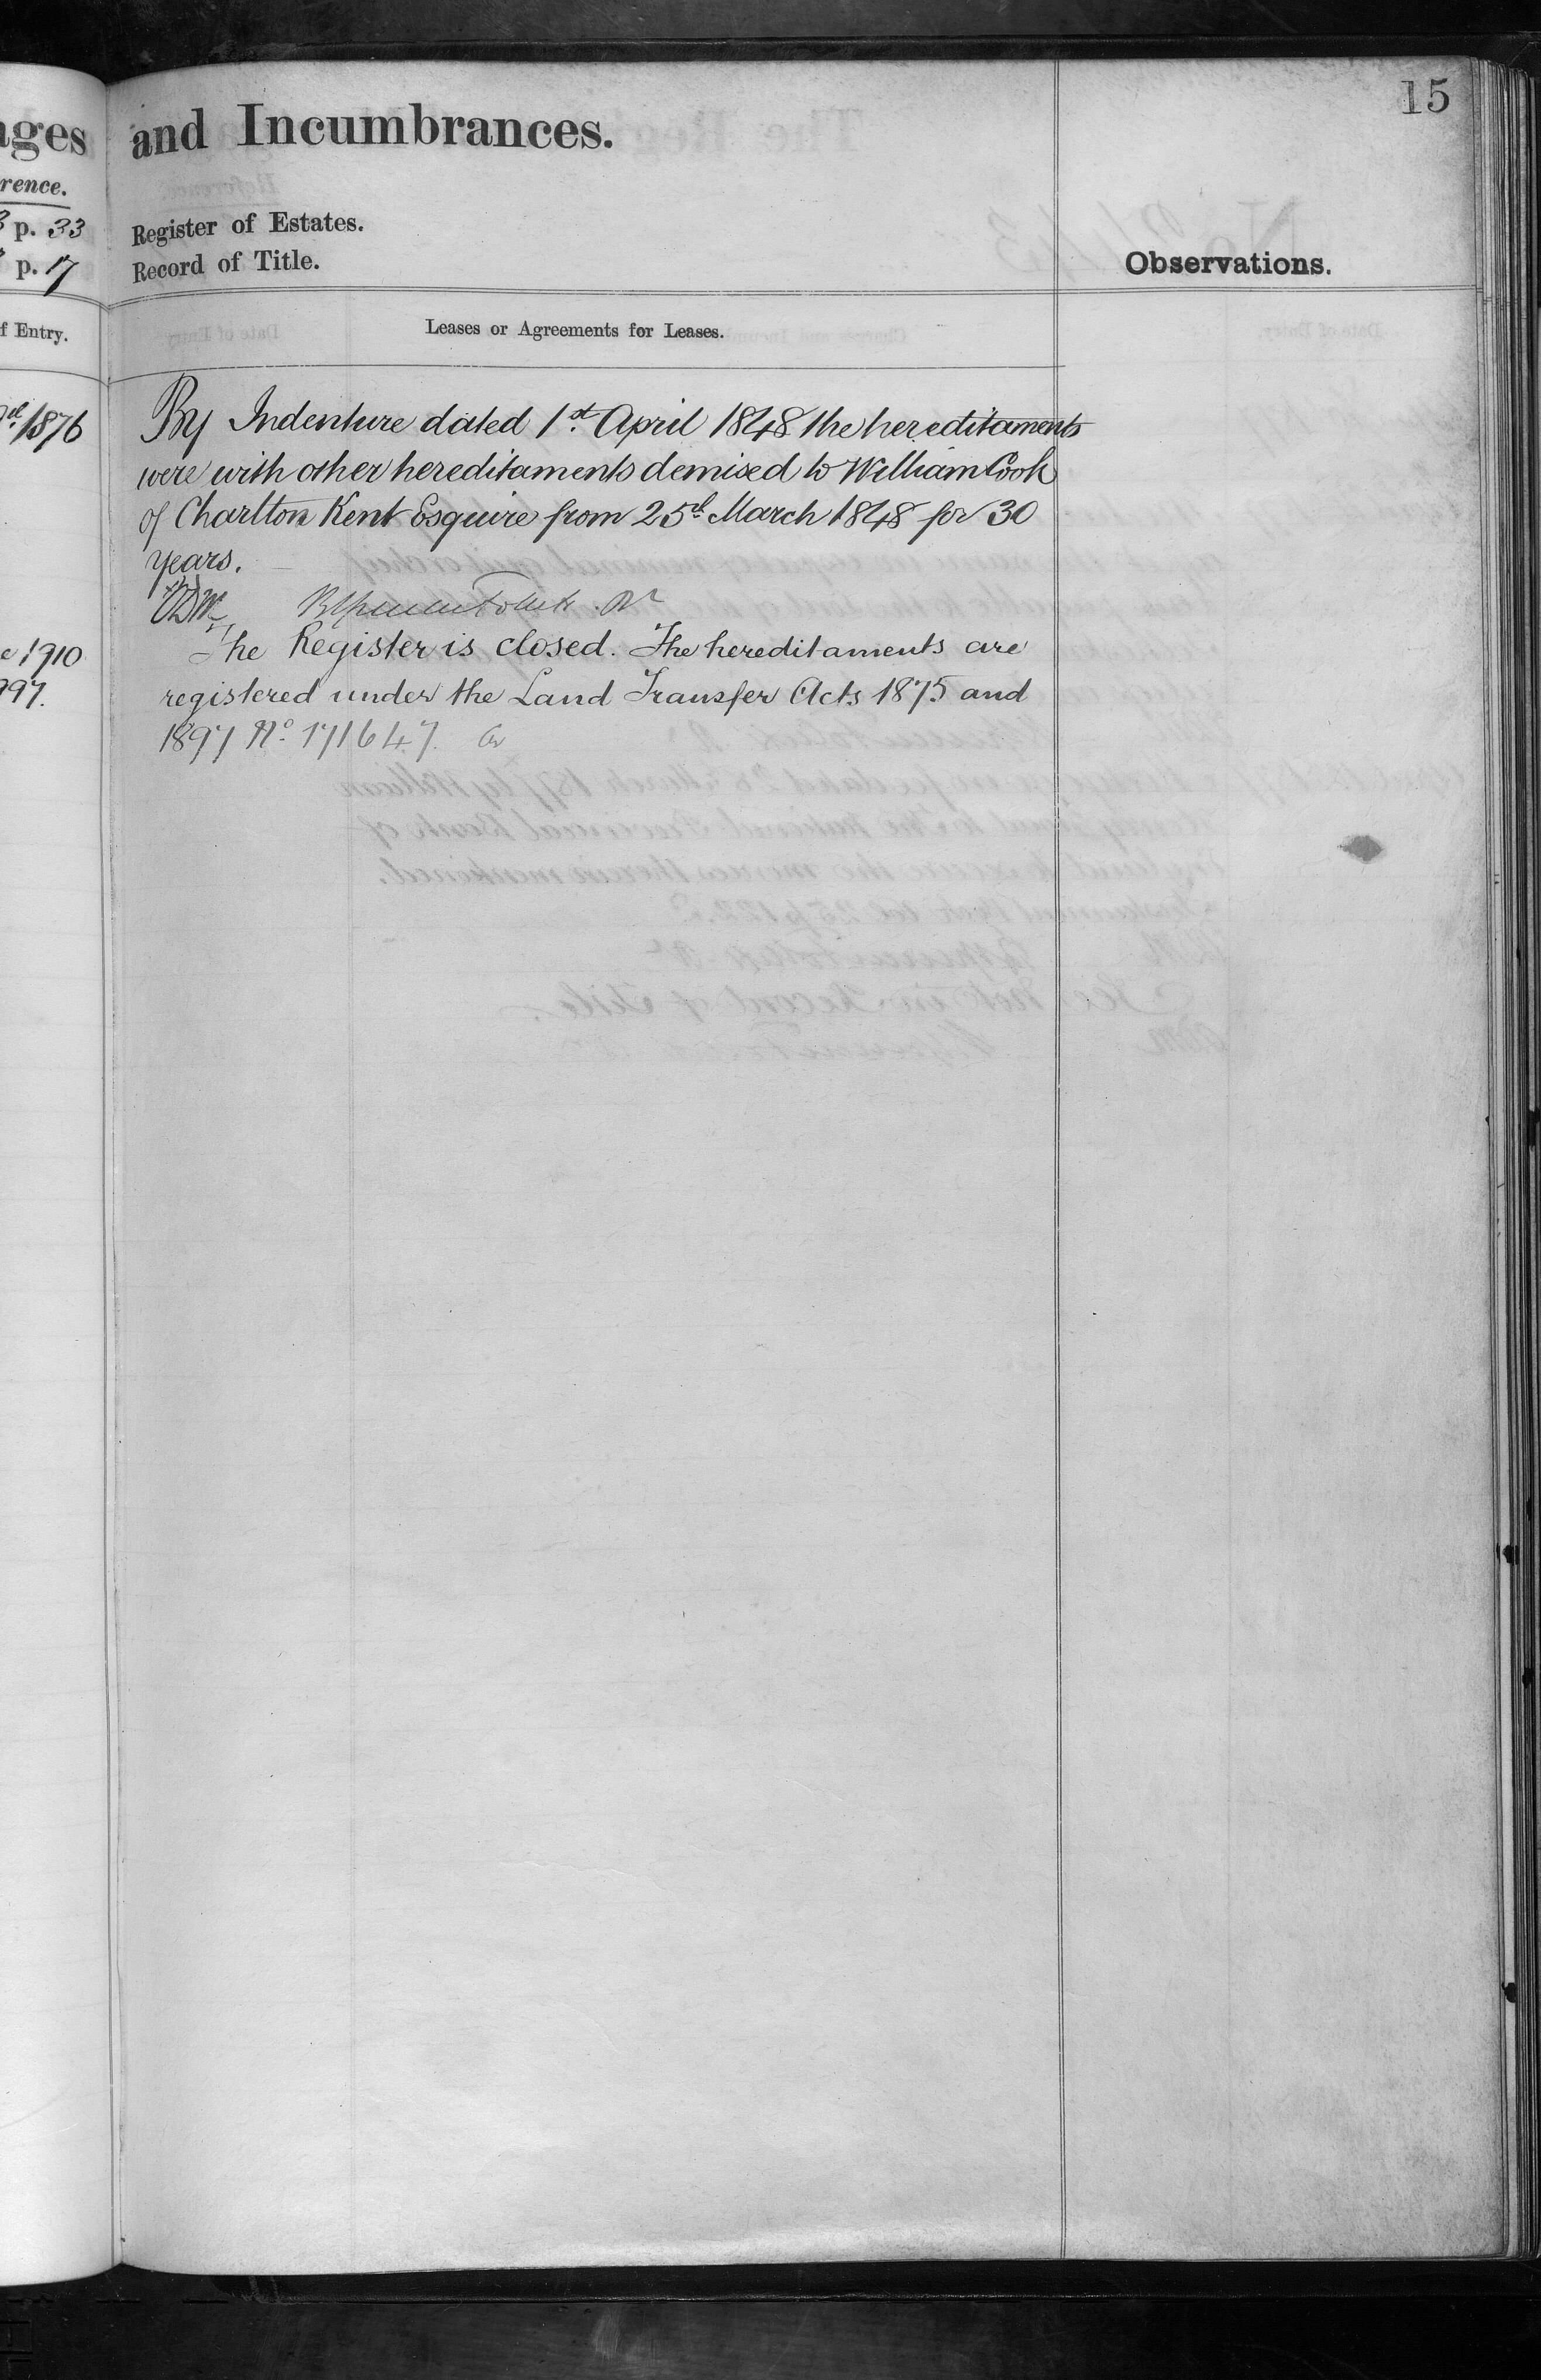 15
ages
and Incumbrances.
rence.
p. 33
Register of Estates.
p. 17
Record of Title.
Observations.
f Entry.
Leases or Agreements for Leases.
1876
By Indenture dated 1st April 1848 the hereditaments
were with other hereditaments demised to William Cook
of Charlton Kent Esquire from 25th March 1848 for 30
years.
1910
The Register is closed. The hereditaments are
997.
registered under the Land Transfer Acts 1875 and
1897 No. 171647.